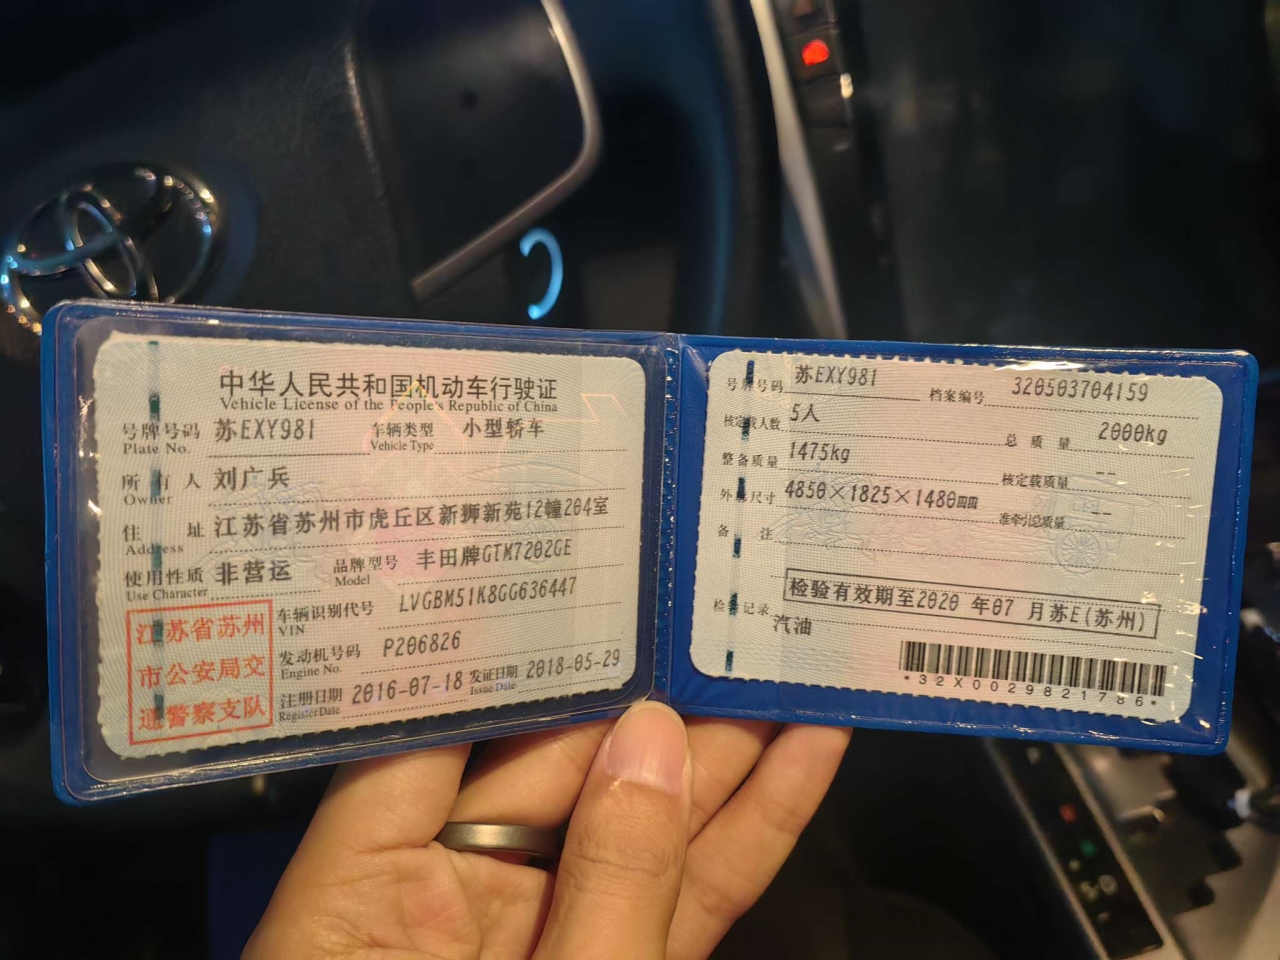 中华人民共和国机动车行驶证
Vehicle License of the People's Republic of China
号牌号码 苏EXY981 车辆类型 小型轿车
Plate No. Vehicle Type
所有人 刘广兵
Owner
住址 江苏省苏州市虎丘区新狮新苑12幢204室
Address
使用性质 非营运 品牌型号 丰田牌GTM7202GE
Use Character Model
江苏省苏州
市公安局交
通警察支队
车辆识别代号 LVGBM51K8GG636447
VIN
发动机号码 P206826
Engine No.
注册日期 2016-07-18 发证日期 2018-05-29
Register Date Issue Date
号牌号码 苏EXY981 档案编号 320503704159
核定载人数 5人 总质量 2000kg
整备质量 1475kg 核定载质量 --
外廓尺寸 4850×1825×1480㎜ 准牵引总质量 --
备注
检验有效期至2020年07月苏E(苏州)
检验记录
汽油
*32X0029821786*